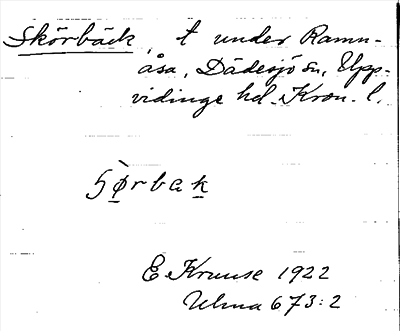 Skörbäck, t under Ramn-
åsa, Dädesjö sn, Upp-
vidinge hd. Kron. l.
ʃø̀rbak
E Kruuse 1922
Ulma 673:2